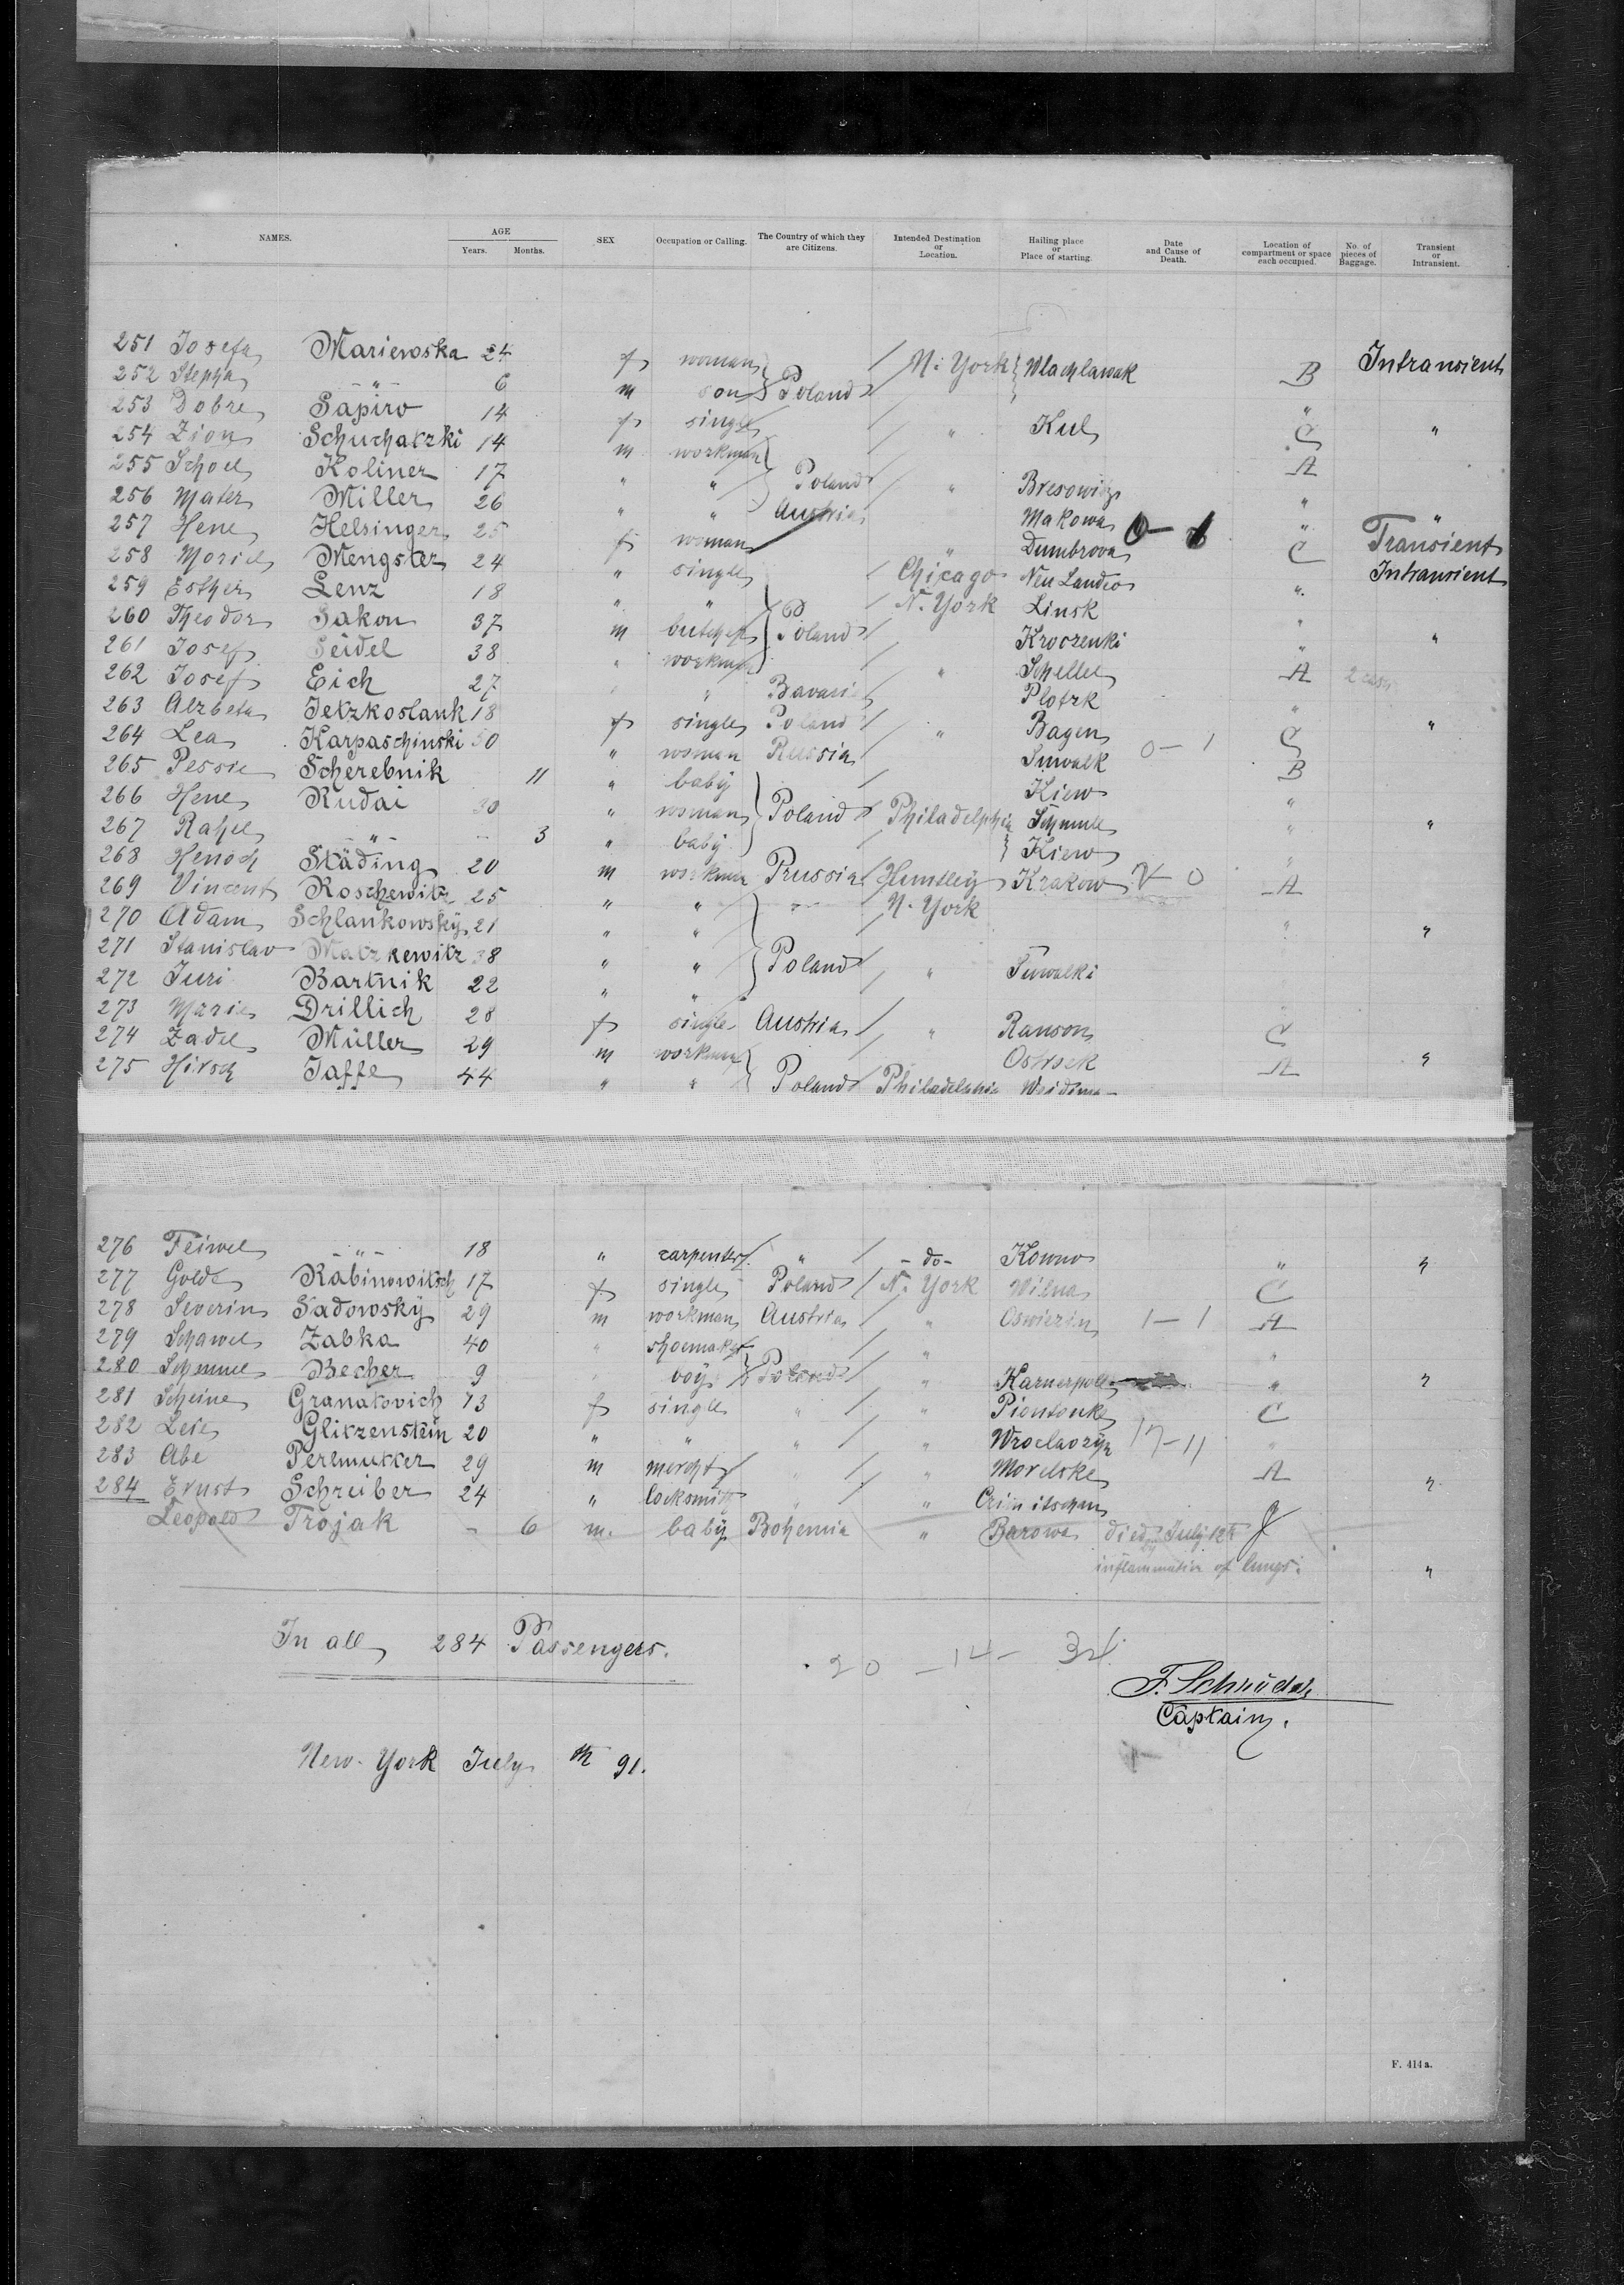 NAMES. AGE Years. Months. SEX Occupation or Calling. The Country of which they are Citizens. Intended Destination or Location. Hailing place or Place of starting. Date and Cause of Death. Location of compartment or space each occupied. No. of pieces of Baggage. Transient or Intransient.
251 Josefa Mariewska 24 f woman / N. York Wlachlawak B Intransient
252 Stepha -"- 6 m son Poland /
253 Dobre Sapiro 14 f single / " Kul " C "
254 Zion Schuchatzki 14 m workman /
255 Schoel Koliner 17 " " Poland / " Bresowitz A
256 Mater Miller 26 " " Austria Makowa "
257 Hene Helsinger 25 f woman " Dumbrova " Transient
258 Moriel Mengster 24 " single / Chicago Neu Landeo C Intransient
259 Esther Lenz 18 " " / N. York Linsk "
260 Theodor Sakon 37 m butcher Poland / Kroczenki " "
261 Josef Seidel 38 " workman / " Schellel "
262 Josef Eich 27 " " Bavaria Plotzk A
263 Alzbeta Jetzkoslank 18 f single Poland / " Bagen " "
264 Lea Karpaschinski 50 " woman Russia Suwalk 0-1 C
265 Pessie Scherebnik 11 " baby / Kiew B
266 Hene Rudai 30 " woman Poland Philadelphia Schmule "
267 Rahel -"- - 3 " baby Kiew " "
268 Henoch Städing 20 m workman Prussia / Huntley Krakow "
269 Vincent Roschewitz 25 " " / N. York A
270 Adam Schlankowsky 21 " " " "
271 Stanislav Matzkewitz 38 " " Poland / " Suwalki
272 Juri Bartnik 22 " "
273 Marie Drillich 28 f single Austria / " Ranson
274 Zadel Müller 29 m workman / Ostrsek C
275 Hirsch Jaffe 44 " " Poland Philadelphia A "
276 Feiwel -"- 18 " carpenter " / -do- Kowno " "
277 Golde Rabinowitsch 17 f single Poland / N. York Wilna C
278 Severin Sadowsky 29 m workman Austria / " Oswiezin 1-1 A
279 Schawel Zabka 40 " shoemaker / " "
280 Schmuel Becher 9 " boy Poland / " Karnerpole " "
281 Scheine Granatovich 73 f single " / " Piontonke C
282 Leie Glitzenstein 20 " " " / " Wroclaozyn "
283 Abe Perlmutter 29 m mercht " / " Morelske A
284 Ernst Schreiber 24 " locksmith " / " "
Leopold Trojak - 6 m. baby Bohemia " Barowa died July 12th
by inflammation of lungs. "
In all 284 Passengers.
20 - 14 -
F. Schrüder
Captain.
New-York July th 91.
F. 414a.